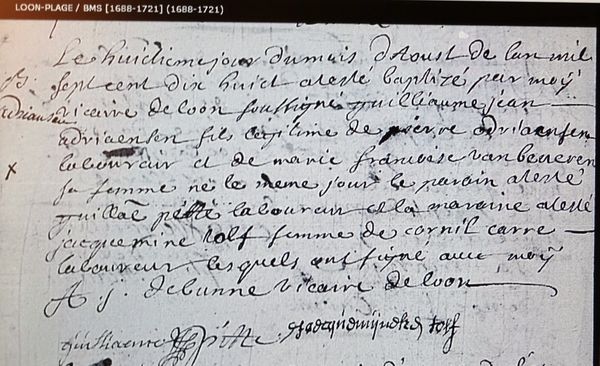 LOON-PLAGE / BMS [1688-1721] (1688-1721)
Le huictieme jour du mois d'Aoust de lan mil
B. sept cent dix huict at esté baptizé par moÿ
adriansen vicaire de loon soussigné guilliaume jean
adriaensen fils legitime de pierre adriaensen
laboureur et de marie francoise vanbeveren
x sa femme né le meme jour le parain at esté
guillae pette laboureur et la maraine at esté
jacquemine rolf femme de cornil carre
laboureur lesquels ont signé avec moÿ
A j. debunne vicaire de loon
guilliaeme pitte jacquemijncke rolf